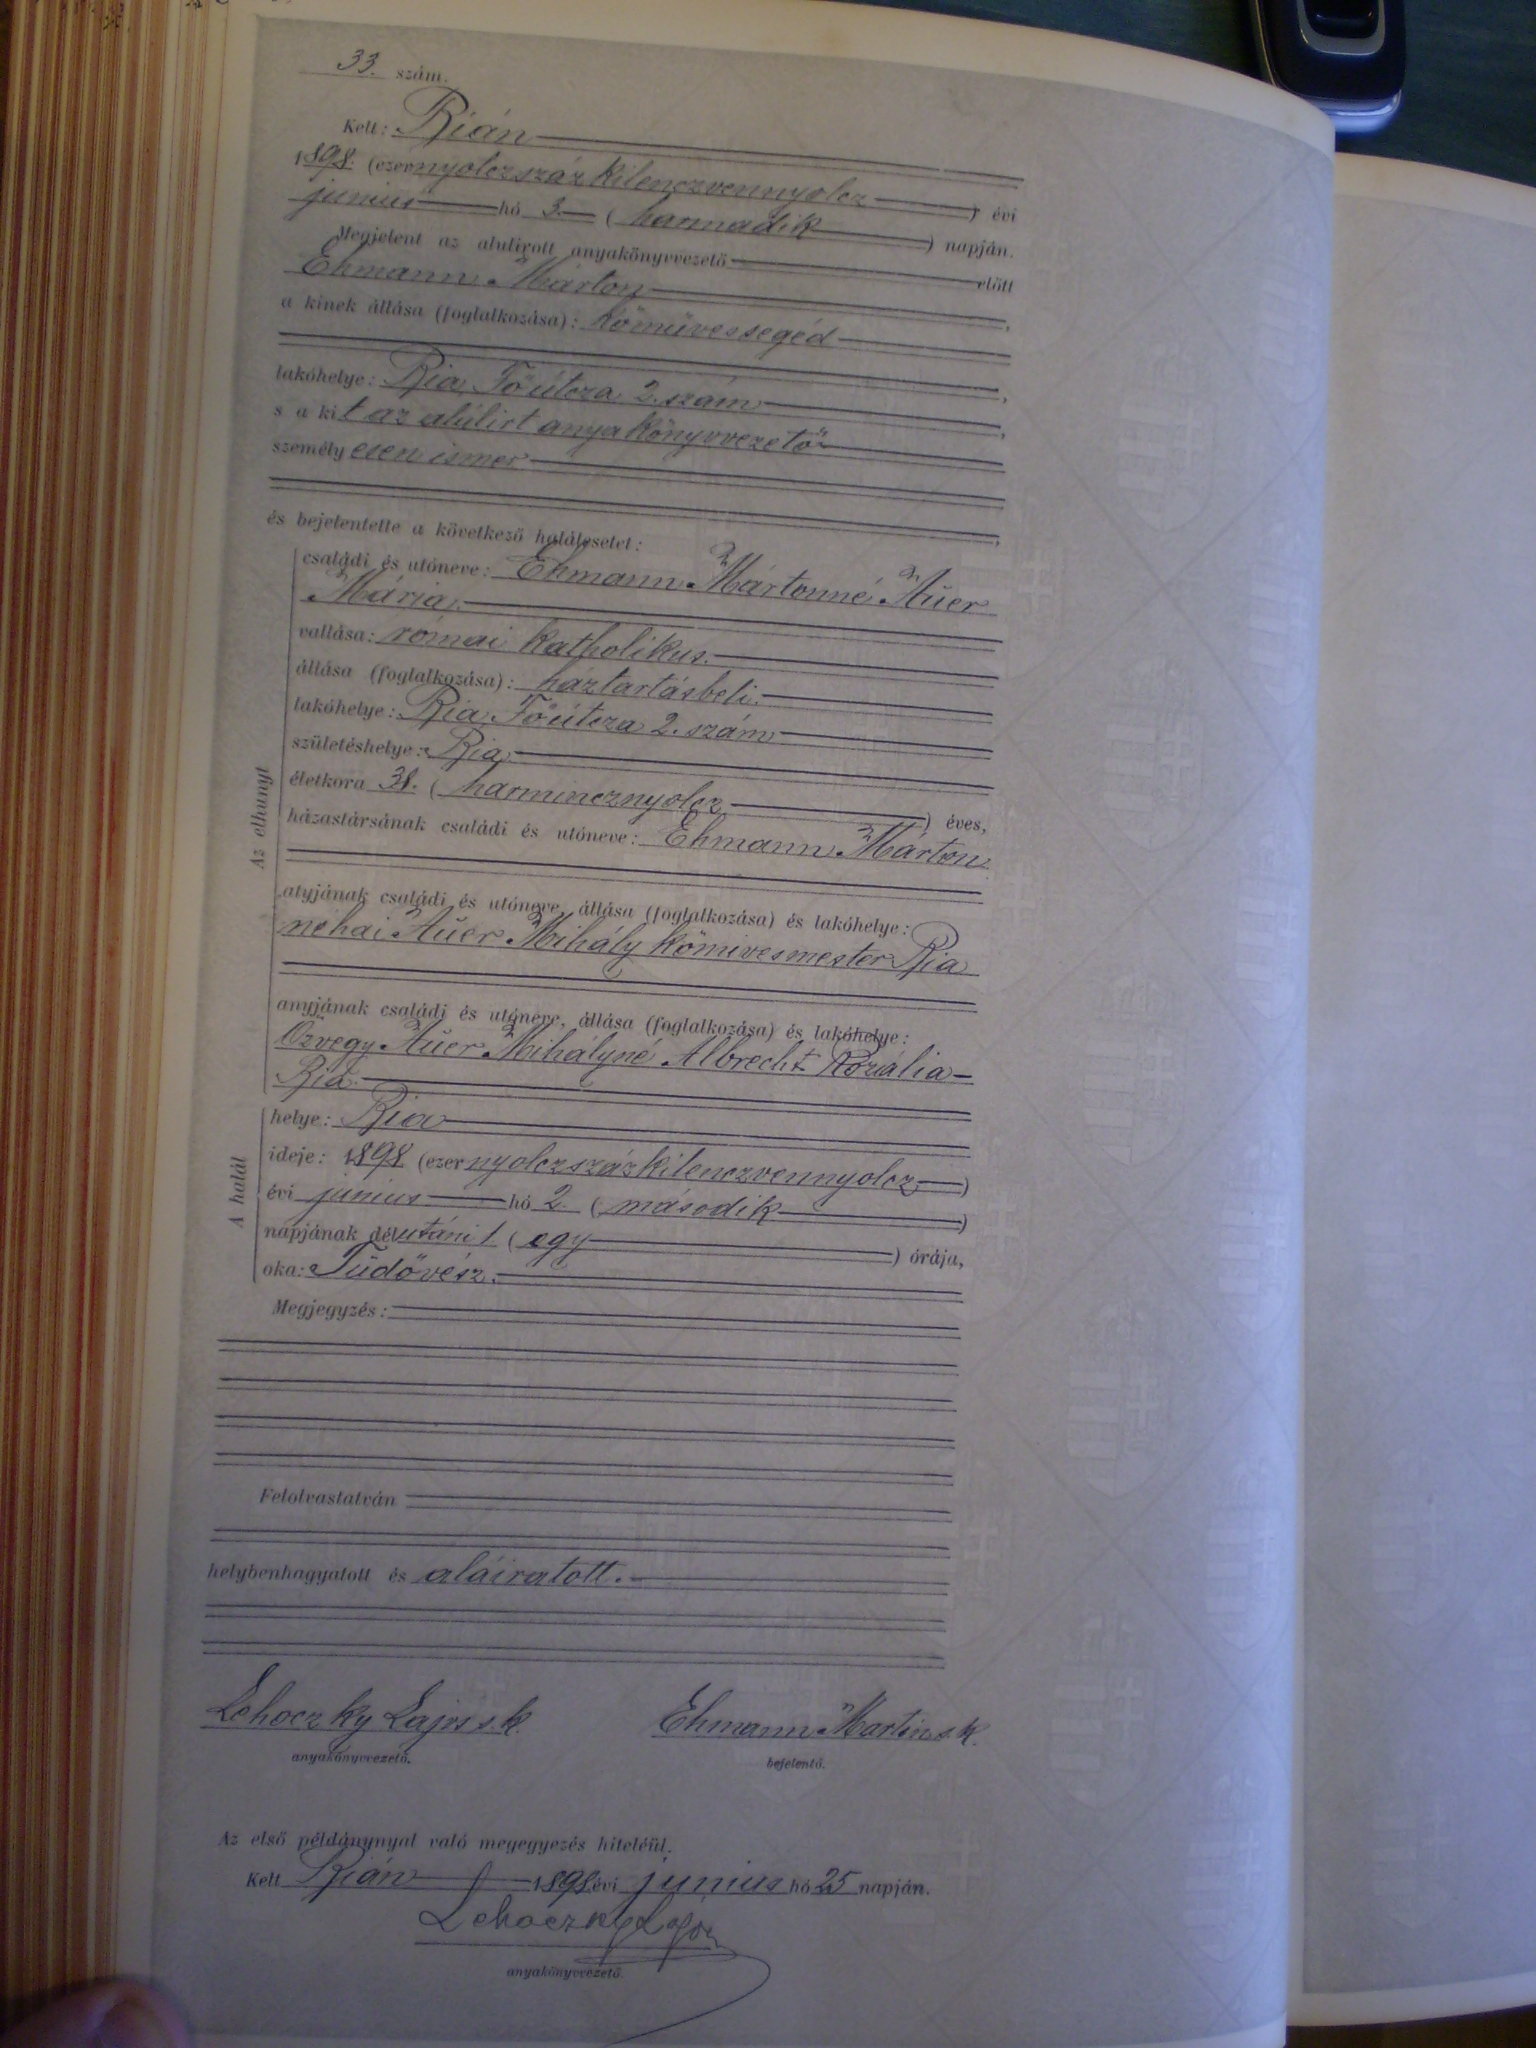 33. szám.
Kelt: Bián
1898. (ezernyolczszázkilenczvennyolcz) évi
junius hó 3. (harmadik) napján.
Megjelent az alulirott anyakönyvvezető előtt
Ehmann Márton,
a kinek állása (foglalkozása): kőmüvessegéd
lakóhelye: Bia Fő útcza 2. szám,
s a kit az alúlirt anyakönyvvezető
személyesen ismer
és bejelentette a következő halálesetet:
Az elhunyt
családi és utóneve: Ehmann Mártonné Auer
Mária.
vallása: római katholikus.
állása (foglalkozása): háztartásbeli.
lakóhelye: Bia Fő útcza 2. szám
születéshelye: Bia
életkora 38. (harmincznyolcz) éves,
házastársának családi és utóneve: Ehmann Márton
atyjának családi és utóneve, állása (foglalkozása) és lakóhelye:
néhai Auer Mihály kőmivesmester Bia
anyjának családi és utóneve, állása (foglalkozása) és lakóhelye:
Özvegy Auer Mihályné Albrecht Rozália
Bia.
A halál
helye: Bia
ideje: 1898 (ezernyolczszázkilenczvennyolcz)
évi junius hó 2. (második)
napjának délutáni 1 (egy) órája,
oka: Tüdővész.
Megjegyzés:
Felolvastatván
helybenhagyatott és aláiratott.
Lehoczky Lajos s.k. Ehmann Martin s.k.
anyakönyvvezető. bejelentő.
Az első példánynyal való megegyezés hiteléül.
Kelt Bián 1898 évi junius hó 25 napján.
Lehoczky Lajos
anyakönyvvezető.